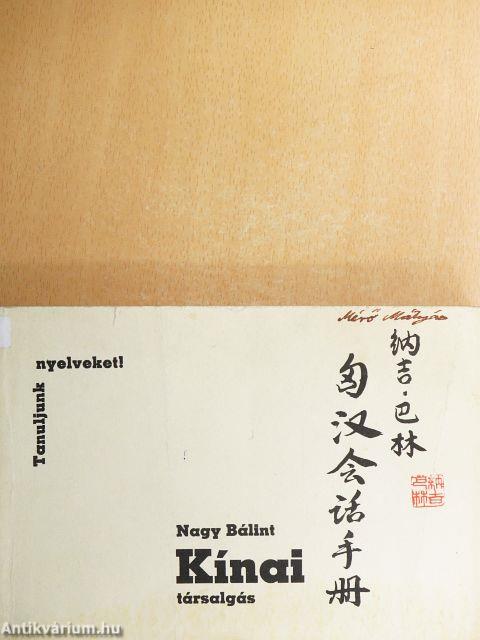 Mérő Mátyás
纳吉·巴林
匈汉会话手册
纳吉
巴林
Tanuljunk
nyelveket!
Nagy Bálint
Kínai
társalgás
Antikvárium.hu